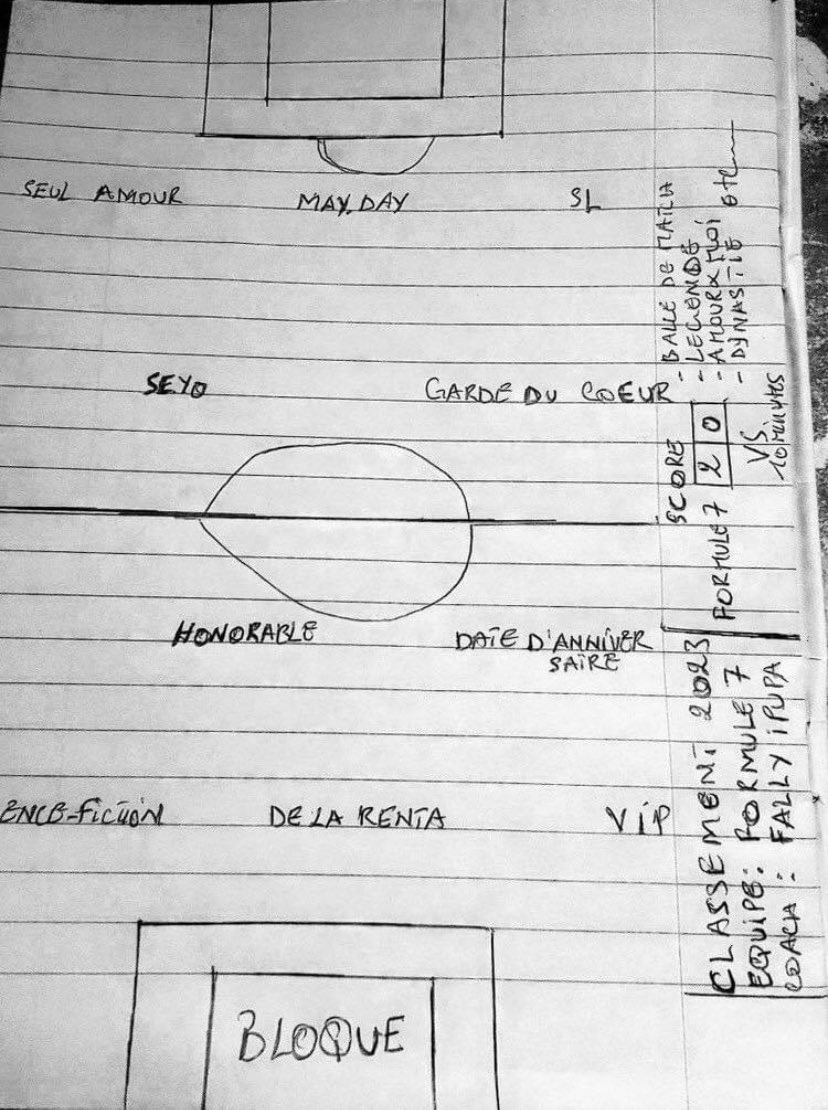 SEUL AMOUR
MAY.DAY
SL
SEYO
GARDE DU COEUR
HONORABLE
DATE D'ANNIVER
SAIRE
ENCE-FICTION
DE LA RENTA
VIP
BLOQUE
CLASSEMENT 2023
EQUIPE: FORMULE 7
COACH : FALLY IPUPA
SCORE
FORMULE 7 2 0
VS
10 minutes
- BALLE DE MATCH
- LEGENDE
- AMOUR X MOI
- DYNASTIE etc